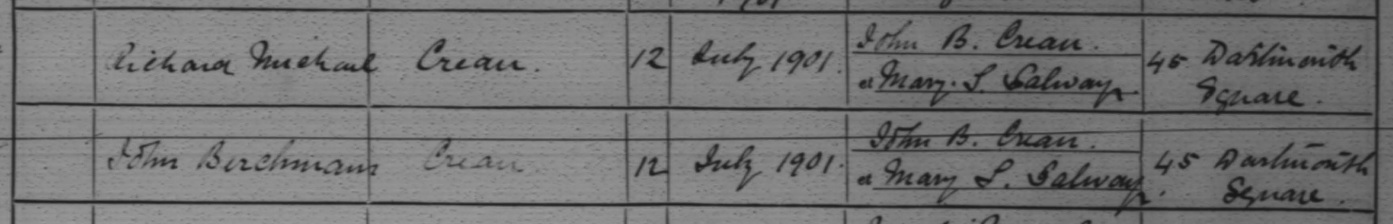 Richard Michael Crean. 12 July 1901. John B. Crean. 45 Dartmouth
& Mary. S. Galway Square.
John Berchmans Crean 12 July 1901. John B. Crean. 45 Dartmouth
& Mary S. Galway. Square.